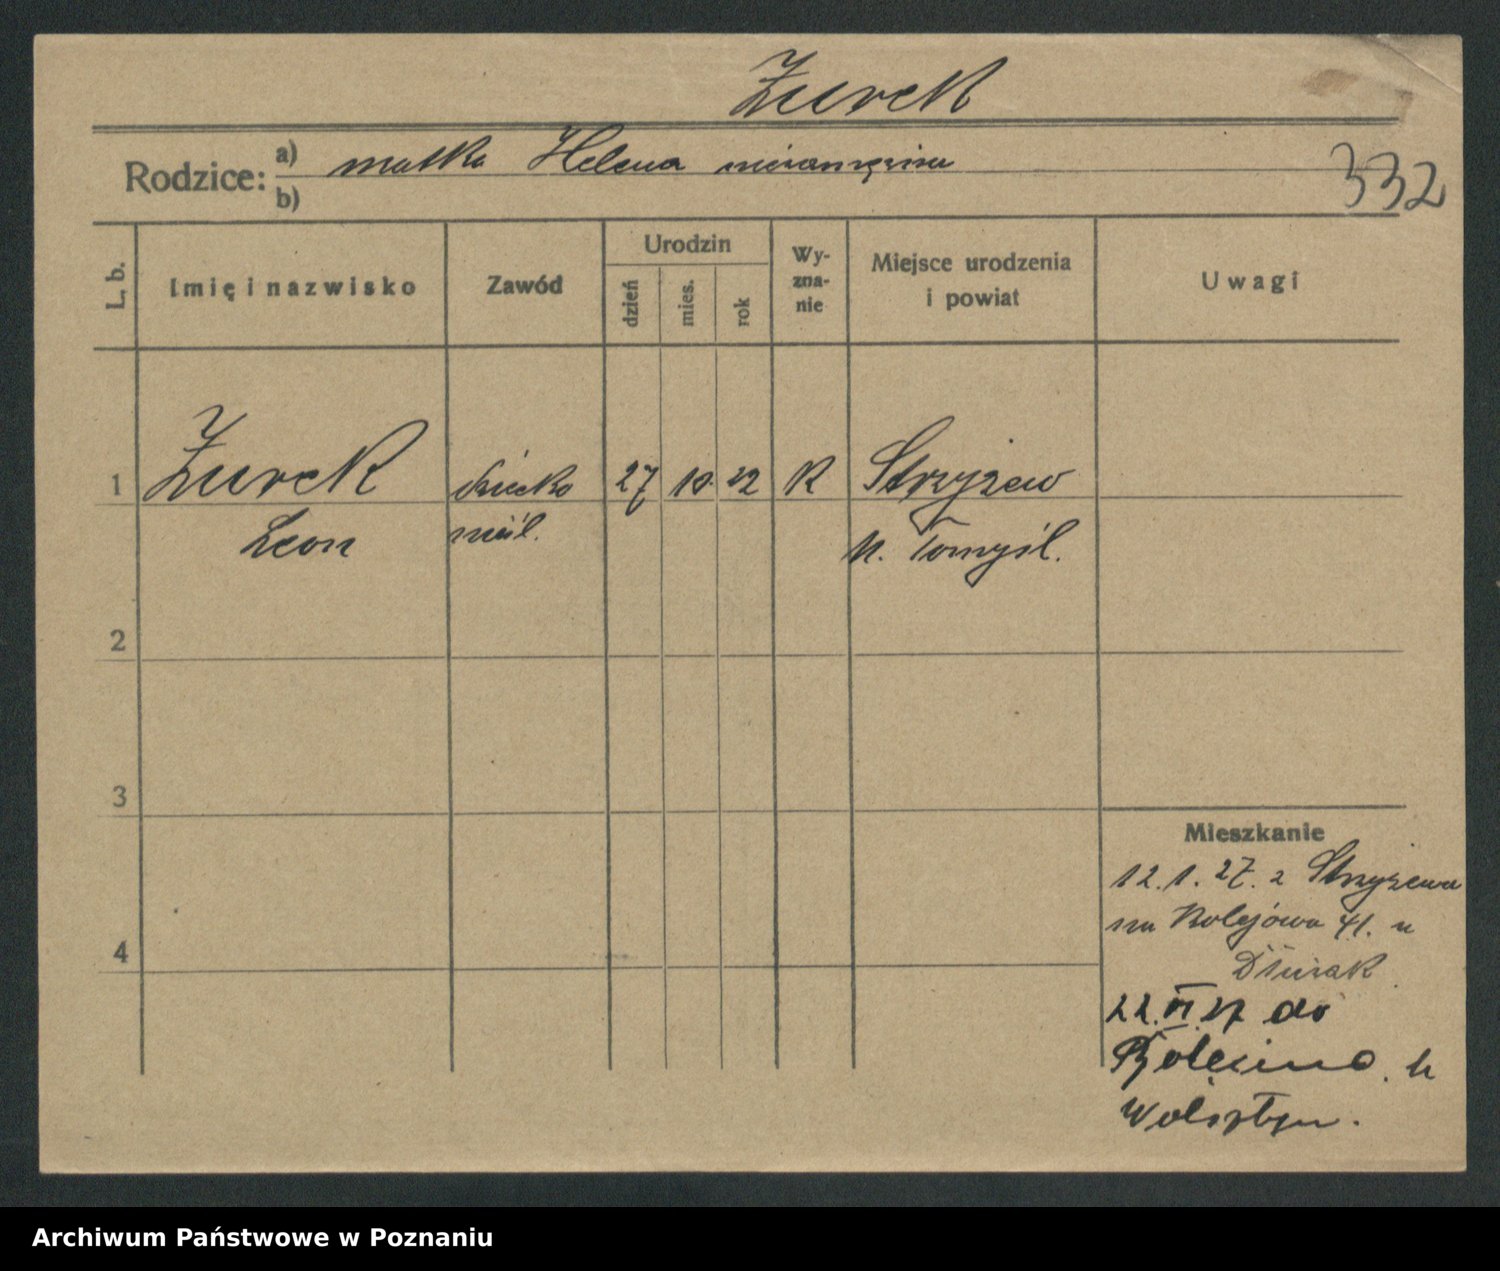 Żurek
Rodzice: a) matka Helena niezamężna
b)
332
L. b.
Imię i nazwisko
Zawód
Urodzin
dzień
mies.
rok
Wy-
zna-
nie
Miejsce urodzenia
i powiat
Uwagi
1 Żurek dziecko 27 10. 22 K Strzyżew
Leon nieśl. N. Tomyśl.
2
3
4
Mieszkanie
12.1.27. z Strzyżewa
na Kolejowa 41. u
22.VI.27 do
Wolsztyn.
Archiwum Państwowe w Poznaniu